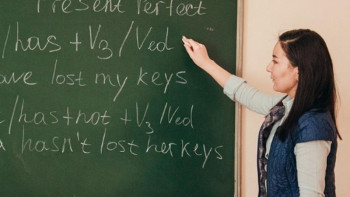 Present Perfect
/has + V3 / Ved
ave lost my keys
/has+not + V3 /Ved
hasn't lost her keys